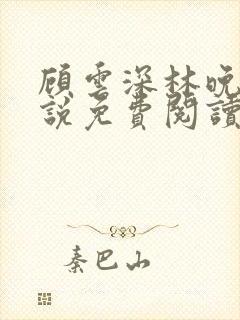 顾雲深林晚
說免費閱讀
秦巴山